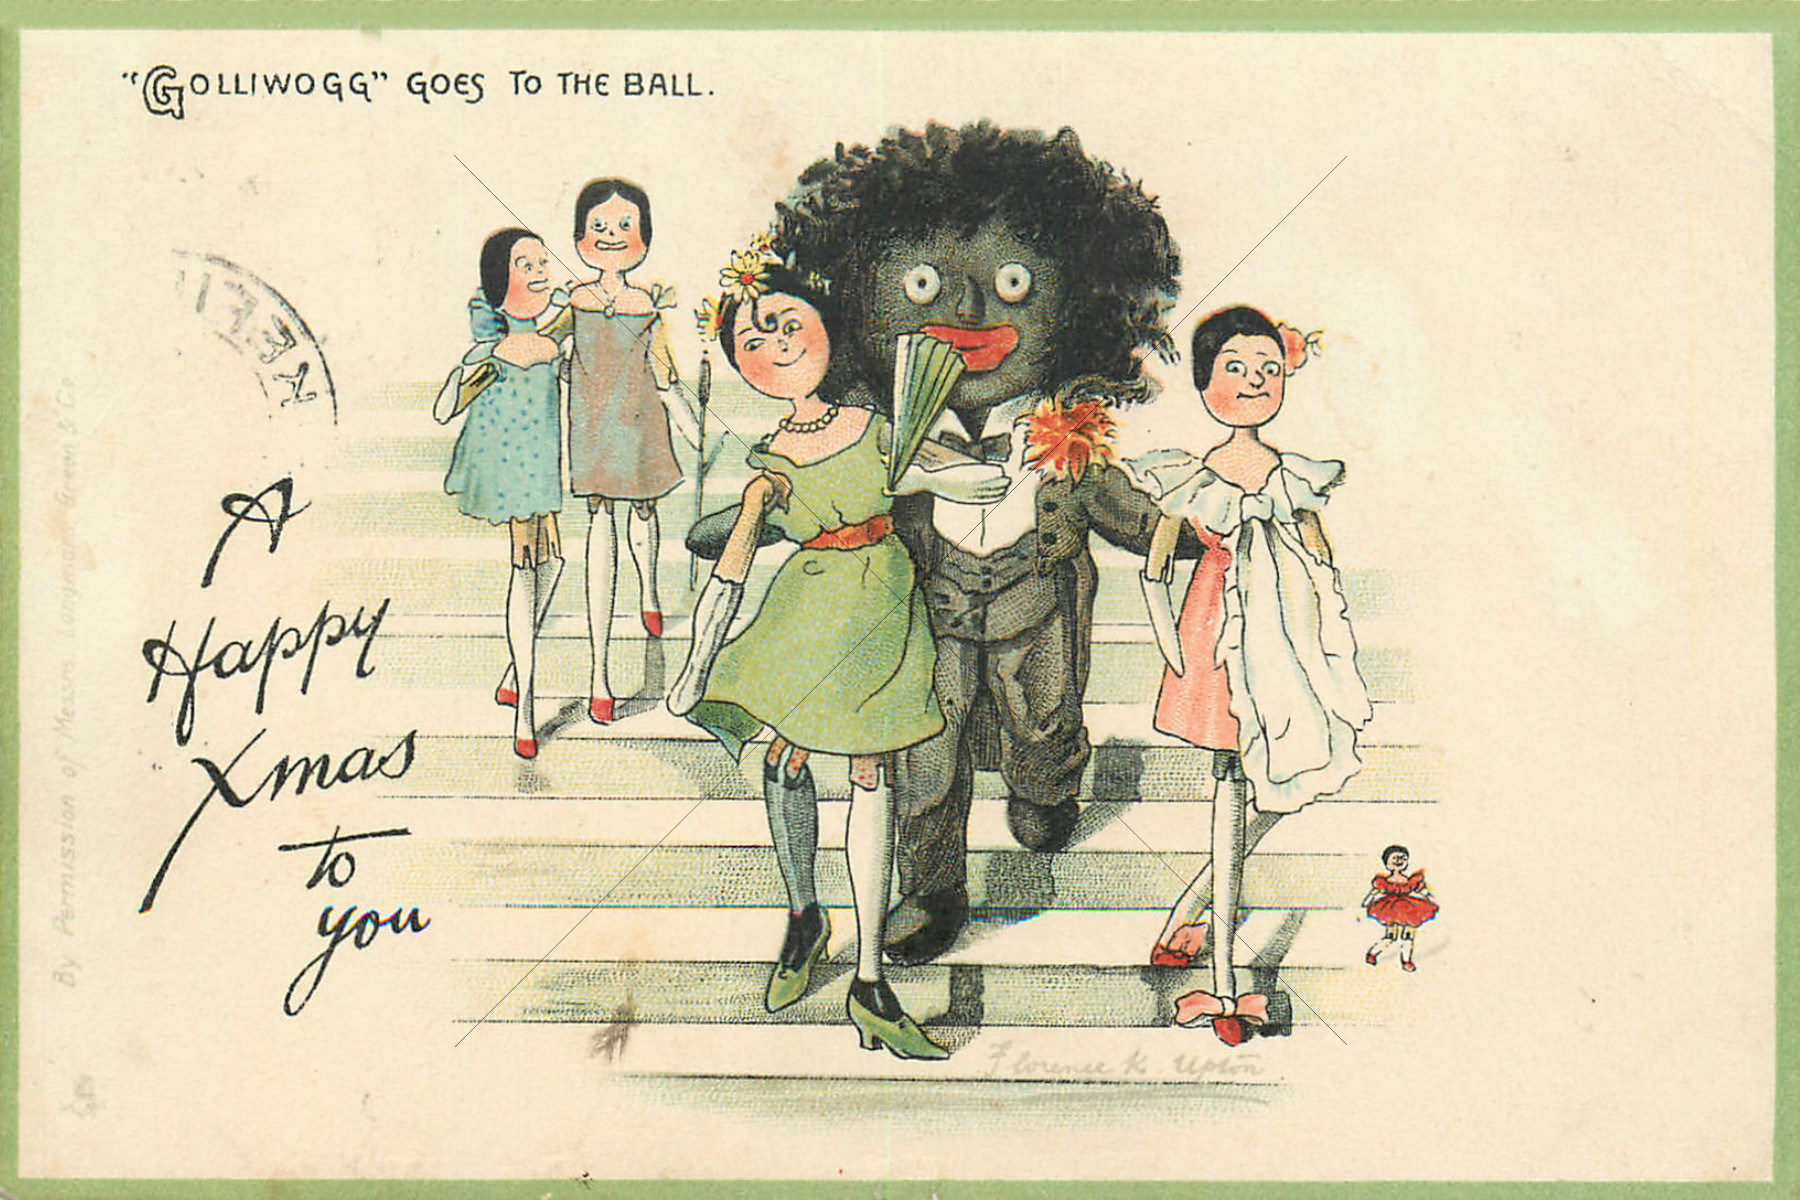 "GOLLIWOGG" GOES TO THE BALL.
A
Happy
Xmas
to
you
By Permission of Messrs Longmans Green & Co
Florence K. Upton